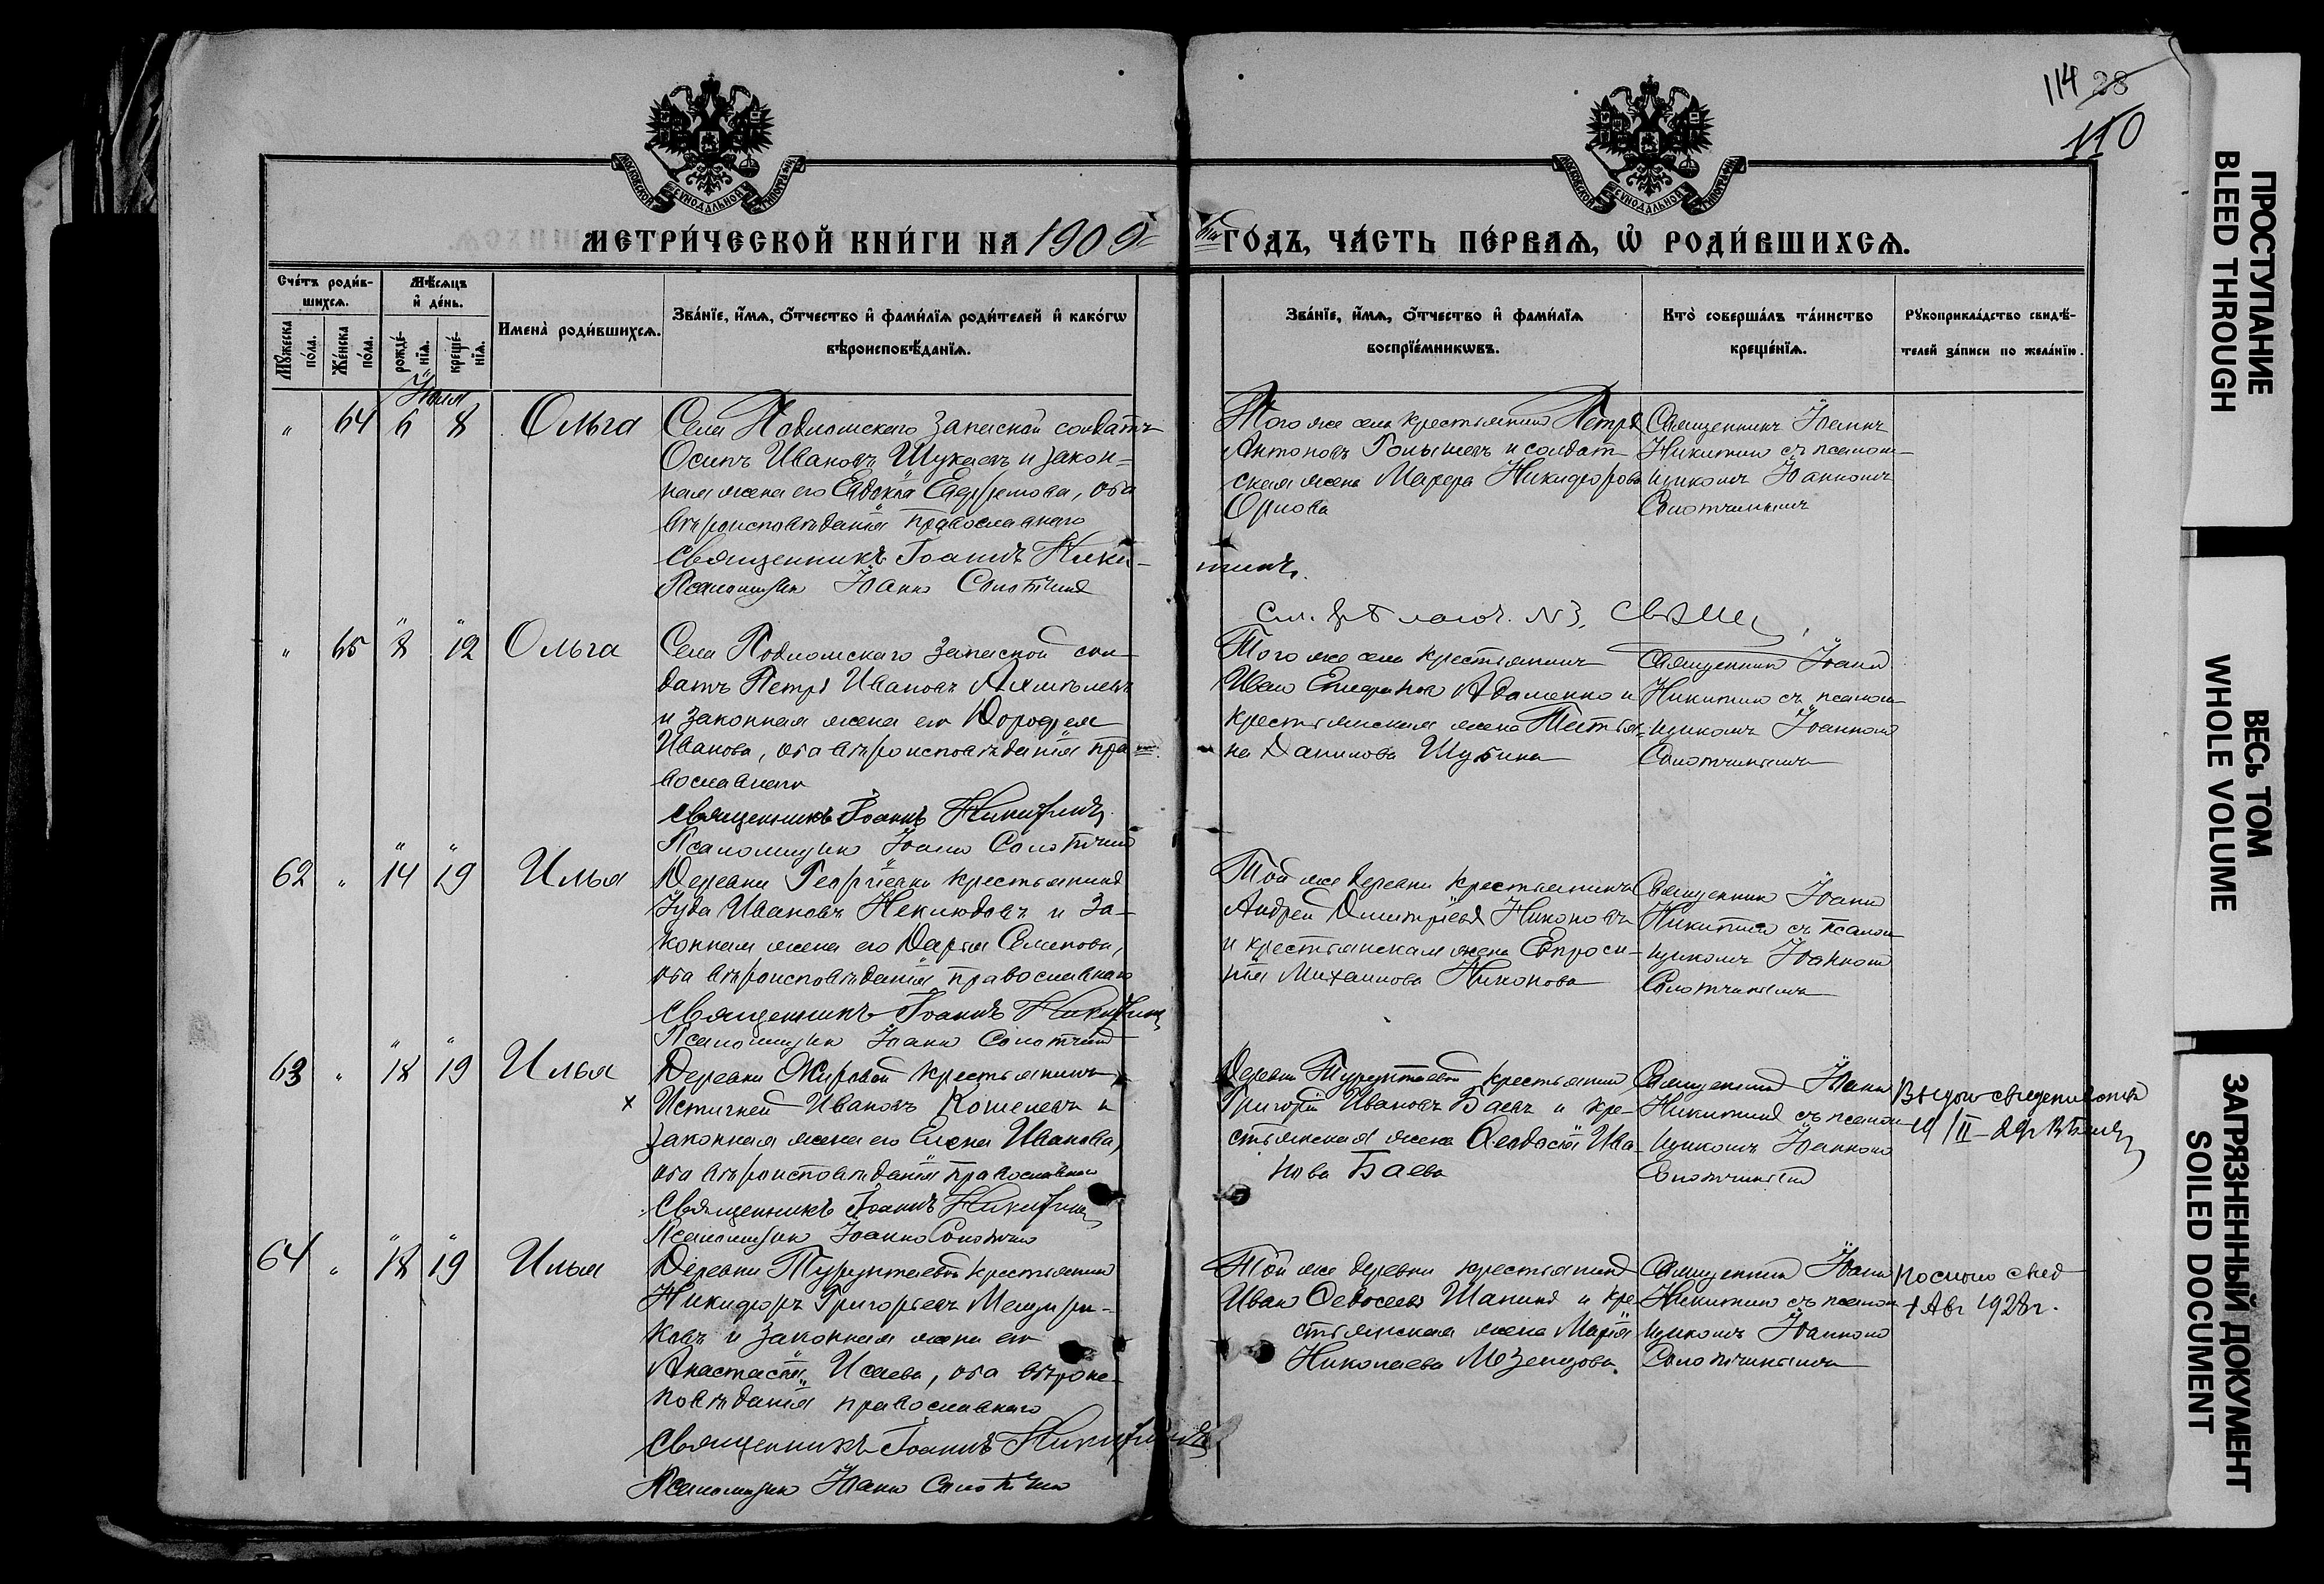 114 28
110
МОСКОВСКОЙ СѴНОДАЛЬНОЙ ТИПОГРАФІИ
МОСКОВСКОЙ СѴНОДАЛЬНОЙ ТИПОГРАФІИ
МЕТРИ́ЧЕСКОЙ КНИ́ГИ НА 1909
ГО́ДЪ, ЧА́СТЬ ПЕ́РВАѦ, Ѽ РОДИ́ВШИХСѦ.
Сче́тъ роди́в-
шихсѧ.
Мѣ́сѧцъ
и҆ де́нь.
Мꙋ́жеска по́ла.
Же́нска по́ла.
рожде́-
нїѧ.
креще́-
нїѧ.
И҆мена̀ роди́вшихсѧ.
Зва́нїе, и҆́мѧ, ѻ҆́тчество и҆ фами́лїѧ роди́телей и҆ како́гѡ
вѣроисповѣ́данїѧ.
Зва́нїе, и҆́мѧ, ѻ҆́тчество и҆ фами́лїѧ
воспрїе́мникѡвъ.
Кто̀ соверша́лъ та́инство
креще́нїѧ.
Рꙋкоприкла́дство свидѣ́-
телей за́писи по жела́нїю.
Іюля
" 64 6 8 Ольга
Села Подломскаго запасной солдатъ
Осипъ Ивановъ Шукаевъ и закон=
ная жена его Евдокія, оба
вѣроисповѣданія православнаго
Священникъ Іоаннъ Ники-
тинъ.
Псаломщикъ Іоаннъ Солотчинъ
Того же села крестьянинъ Петръ
Антоновъ и солдат-
ская жена Марфа Никифорова
Орлова
Священникъ Іоаннъ
Никитинъ съ псалом-
щикомъ Іоанномъ
Солотчинымъ
№ 3.
" 65 8 12 Ольга
Села Подломскаго запасной сол-
датъ Петръ Ивановъ
и законная жена его Дорофея
Иванова, оба вѣроисповѣданія пра-
вославнаго
Священникъ Іоаннъ Никитинъ
Псаломщикъ Іоаннъ Солотчинъ
Того же села крестьянинъ
Иванъ Адаменко и
крестьянская жена Татья-
на Данилова Шубина
Священникъ Іоаннъ
Никитинъ съ псалом-
щикомъ Іоанномъ
Солотчинымъ
62 " 14 19 Илья
Деревни Георгіевки крестьянинъ
Іуда Ивановъ Неклюдовъ и за-
конная жена его Дарья Семенова,
оба вѣроисповѣданія православнаго
Священникъ Іоаннъ Никитинъ
Псаломщикъ Іоаннъ Солотчинъ
Той же деревни крестьянинъ
Андрей Димитріевъ Никоновъ
и крестьянская жена Евроси-
нія Михаилова Никонова
Священникъ Іоаннъ
Никитинъ съ псалом-
щикомъ Іоанномъ
Солотчинымъ
63 " 18 19 Илья
Деревни Жировой крестьянинъ
х Истигней Ивановъ Кошелевъ и
законная жена его Елена Иванова,
оба вѣроисповѣданія православнаго
Священникъ Іоаннъ Никитинъ
Псаломщикъ Іоаннъ Солотчинъ
Деревни Турунтаевой крестьянинъ
Григорій Ивановъ Баевъ и кре-
стьянская жена Ѳеодосія Ива-
нова Баева
Священникъ Іоаннъ
Никитинъ съ псалом-
щикомъ Іоанномъ
Солотчинымъ
64 " 18 19 Илья
Деревни Турунтаевой крестьянинъ
Никифоръ Григорьевъ Мещеря-
ковъ и законная жена его
Анастасія Исаева, оба вѣроис-
повѣданія православнаго
Священникъ Іоаннъ Никитинъ
Псаломщикъ Іоаннъ Солотчинъ
Той же деревни крестьянинъ
Иванъ Ѳедосеевъ Шапинъ и кре-
стьянская жена Марія
Николаева Мезенцова.
Священникъ Іоаннъ
Никитинъ съ псалом-
щикомъ Іоанномъ
Солотчинымъ
1 Авг 1928 г.
ПРОСТУПАНИЕ
BLEED THROUGH
ВЕСЬ ТОМ
WHOLE VOLUME
ЗАГРЯЗНЕННЫЙ ДОКУМЕНТ
SOILED DOCUMENT